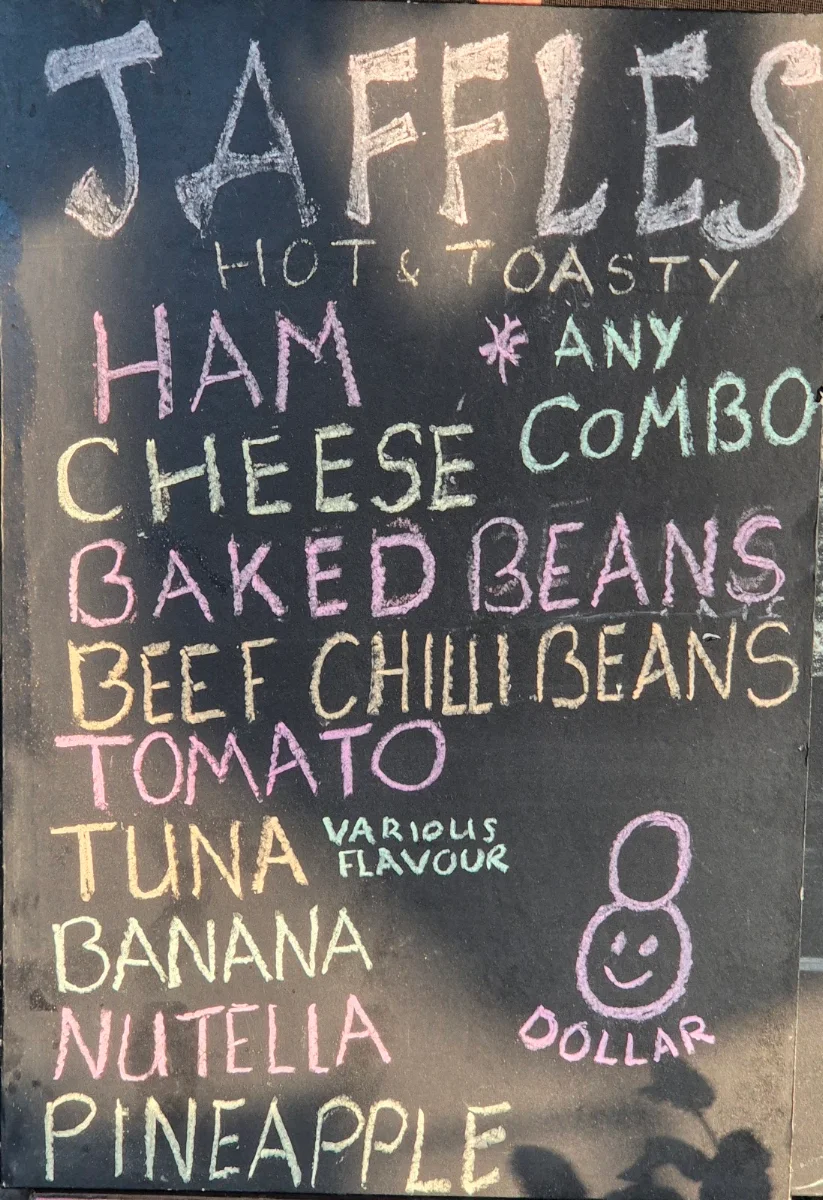 JAFFLES
HOT & TOASTY
HAM
* ANY
COMBO
CHEESE
BAKED BEANS
BEEF CHILLI BEANS
TOMATO
TUNA
VARIOUS
FLAVOUR
BANANA
NUTELLA
PINEAPPLE
8
DOLLAR